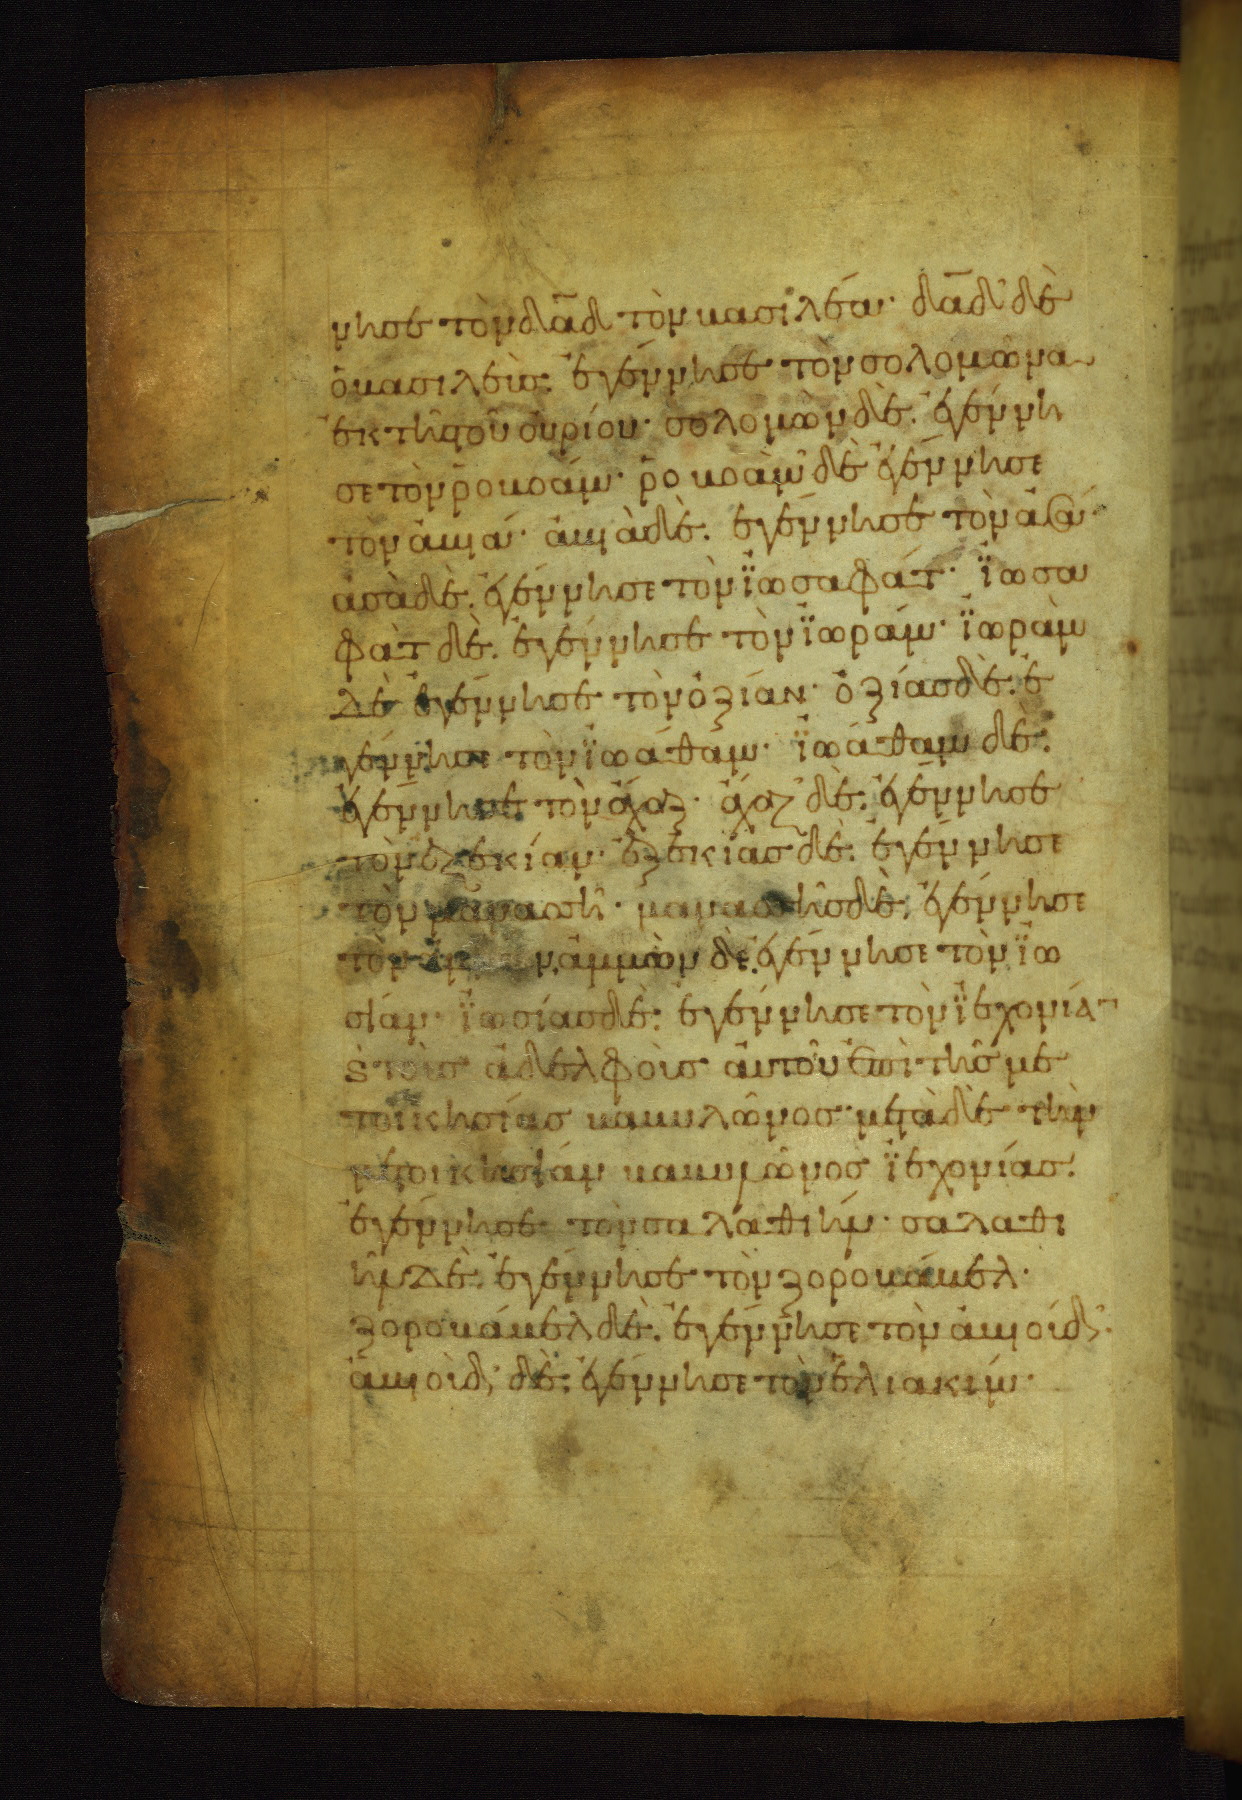 νησε τὸν δα̅δ τὸν βασιλέα· δα̅δ δὲ
ὁ βασιλεὺς. ἐγέννησε τὸν σολομῶνα
ἐκ τῆς τοῦ οὐρίου· σολομὼν δὲ. ἐγέννη
σε τὸν ῥοβοάμ· ῥοβοὰμ δὲ ἐγέννησε
τὸν ἀβιά· ἀβιὰ δὲ. ἐγέννησε τὸν ἀσά·
ἀσὰ δὲ. ἐγέννησε τὸν ἰωσαφάτ· ἰωσα
φὰτ δὲ. ἐγέννησε τὸν ἰωράμ· ἰωρὰμ
δὲ ἐγέννησε τὸν ὀζίαν· ὀζίας δὲ. ἐ
γέννησε τὸν ἰωάθαμ· ἰωάθαμ δὲ.
ἐγέννησε τὸν ἄχαζ· ἄχαζ δὲ. ἐγέννησε
τὸν ἐζεκίαν· ἐζεκίας δὲ. ἐγέννησε
τὸν μανασσῆ· μανασσῆς δὲ. ἐγέννησε
τὸν ἀμμὼν δὲ. ἐγέννησε τὸν ἰω
σίαν· ἰωσίας δὲ. ἐγέννησε τὸν ἰεχονίαν
ϗ τοὺς ἀδελφοὺς αὐτοῦ ἐπὶ τῆς με
τοικησίας βαβυλῶνος· μετὰ δὲ τὴν
μετοικησίαν βαβυλῶνος ἰεχονίας.
ἐγέννησε τὸν σαλαθιήλ· σαλαθι
ὴλ δὲ. ἐγέννησε τὸν ζοροβάβελ·
ζοροβάβελ δὲ. ἐγέννησε τὸν ἀβιούδ·
ἀβιοὺδ δὲ. ἐγέννησε τὸν ἐλιακίμ·